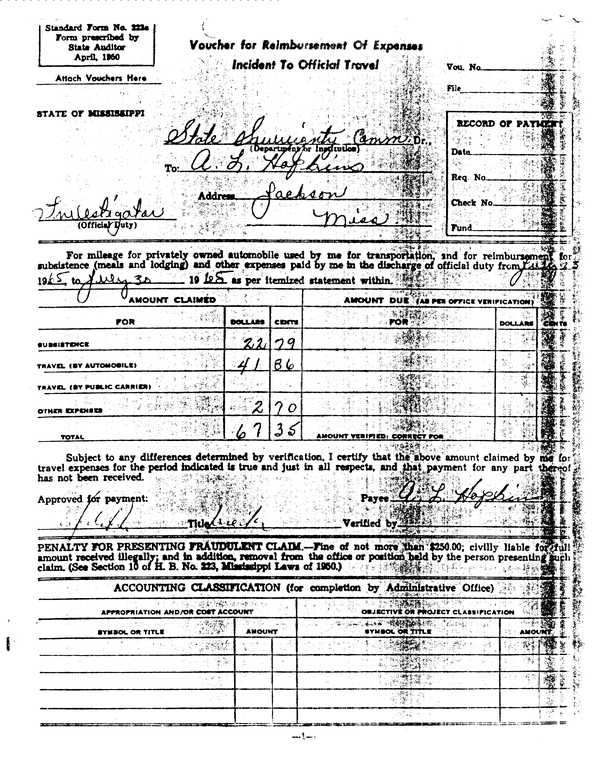 Standard Form No. 223a
Form prescribed by
State Auditor
April, 1950
Attach Vouchers Here
Voucher for Reimbursement Of Expenses
Incident To Official Travel
Vou. No.
File
STATE OF MISSISSIPPI
RECORD OF PAYMENT
Date
Req. No.
Check No.
Fund
State Comm. Dr.,
(Department or Institution)
To: A. L. Hopkins
Address Jackson
Miss
Investigator
(Official Duty)
For mileage for privately owned automobile used by me for transportation, and for reimbursement for
subsistence (meals and lodging) and other expenses paid by me in the discharge of official duty from July
1965, to July 30 1965 as per itemized statement within.
AMOUNT CLAIMED AMOUNT DUE (AS PER OFFICE VERIFICATION)
FOR DOLLARS CENTS FOR DOLLARS CENTS
SUBSISTENCE 22 79
TRAVEL (BY AUTOMOBILE) 41 86
TRAVEL (BY PUBLIC CARRIER)
OTHER EXPENSES 2 70
TOTAL 67 35 AMOUNT VERIFIED: CORRECT FOR
Subject to any differences determined by verification, I certify that the above amount claimed by me for
travel expenses for the period indicated is true and just in all respects, and that payment for any part thereof
has not been received.
Approved for payment: Payee A. L. Hopkins
Title Verified by
PENALTY FOR PRESENTING FRAUDULENT CLAIM.—Fine of not more than $250.00; civilly liable for full
amount received illegally; and in addition, removal from the office or position held by the person presenting such
claim. (See Section 10 of H. B. No. 223, Mississippi Laws of 1950.)
ACCOUNTING CLASSIFICATION (for completion by Administrative Office)
APPROPRIATION AND/OR COST ACCOUNT OBJECTIVE OR PROJECT CLASSIFICATION
SYMBOL OR TITLE AMOUNT SYMBOL OR TITLE AMOUNT
—1—